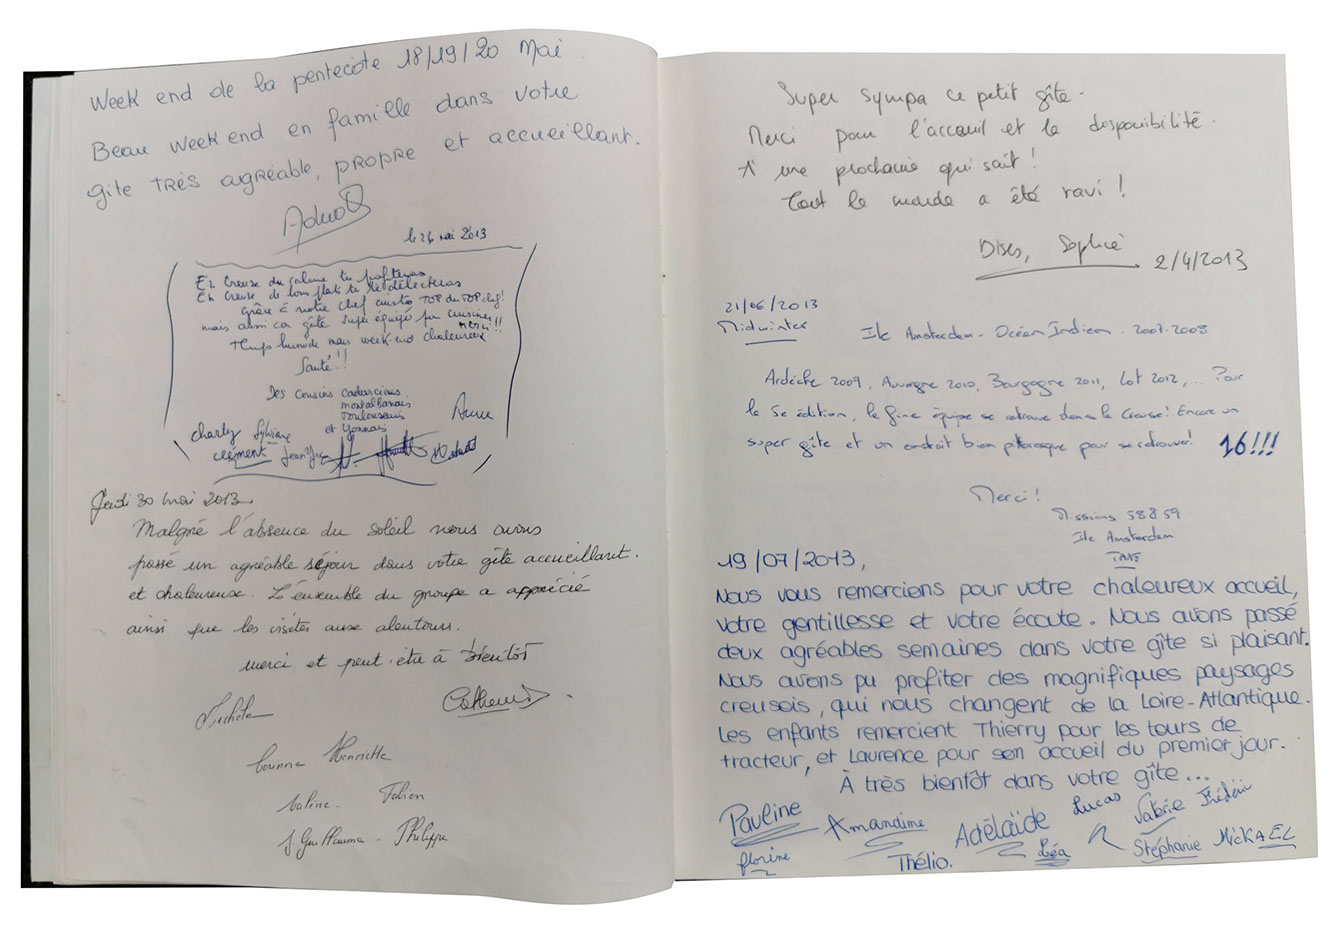 Week end de la pentecôte 18/19/20 Mai.
Beau week end en famille dans votre
gite TRÈS agréable, PROPRE et accueillant.
le 26 mai 2013
En Creuse du calme tu profiteras
En Creuse de bons plats tu te délecteras
Grâce à notre chef cuisto TOP du TOP chef!
mais aussi ce gîte super équipé pour cuisiner
merci!!
temps humide mais week-end chaleureux
Santé!!
Des cousins cadurciens
montalbanais
Toulousains
et Yonnais
Charly Sylviane
Clément Jean Yves
Jeudi 30 mai 2013.
Malgré l'absence du soleil nous avons
passé un agréable séjour dans votre gîte accueillant.
et chaleureuse. L'ensemble du groupe a apprécié
ainsi que les visites aux alentours.
merci et peut-être à bientôt
Henriette
Fabien
Philippe
Super sympa ce petit gîte -
Merci pour l'acceuil et la desponibilité.
A une prochaine qui sait !
Tout le monde a été ravi !
Sophie 2/4/2013
21/06/2013
Midwinter
Ile Amsterdam - Océan Indien. 2007-2008
Ardèche 2009, Auvergne 2010, Bourgogne 2011, Lot 2012,... Pour
la 5e édition, la fine équipe se retrouve dans la Creuse! Encore un
super gîte et un endroit bien pittoresque pour se retrouver! 16!!!
Merci!
Missions 58 & 59
Ile Amsterdam
TAAF
19/07/2013,
Nous vous remercions pour votre chaleureux accueil,
votre gentillesse et votre écoute. Nous avons passé
deux agréables semaines dans votre gîte si plaisant.
Nous avons pu profiter des magnifiques paysages
creusois, qui nous changent de la Loire-Atlantique.
Les enfants remercient Thierry pour les tours de
tracteur, et Laurence pour son accueil du premier jour.
À très bientôt dans votre gîte...
Pauline Amandine Adélaïde Lucas Valérie Frédéric
florine Thélio. Léa Stéphanie MicKAEL